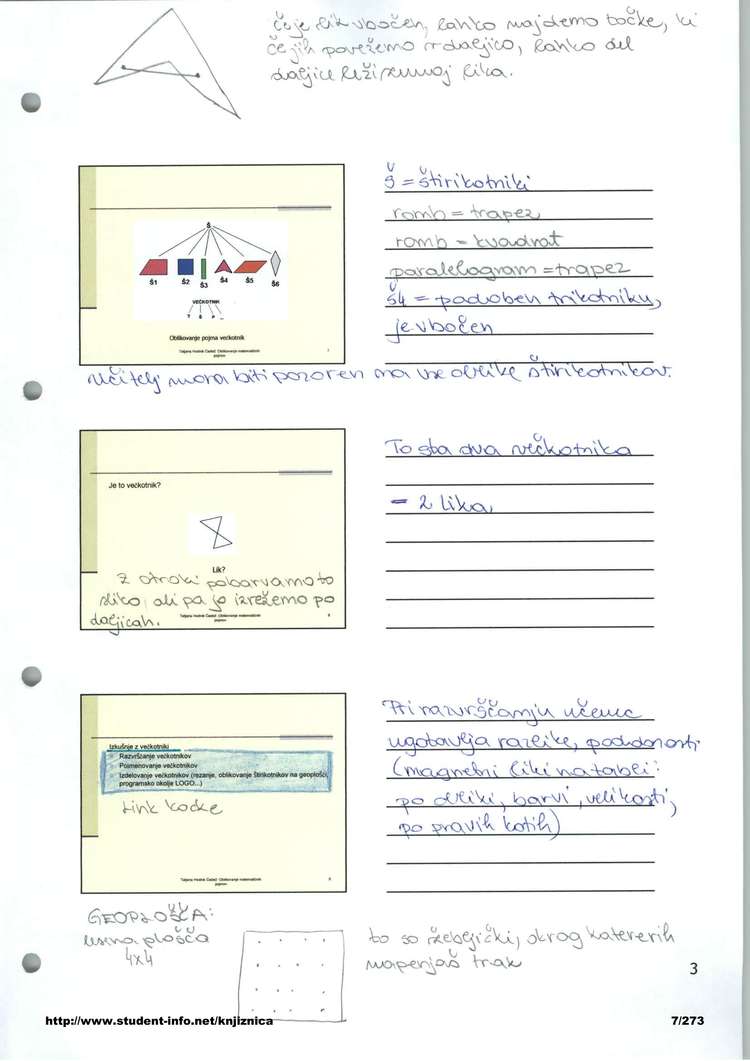 če je lik vbočen, lahko najdemo točke, ki
če jih povežemo z daljico, lahko del
daljice leži zunaj lika.
Š
Š1 Š2 Š3 Š4 Š5 Š6
VEČKOTNIK
T Š P
Oblikovanje pojma večkotnik
Tatjana Hodnik Čadež: Oblikovanje matematičnih
pojmov
7
Š = štirikotniki
romb = trapez
romb = kvadrat
paralelogram = trapez
Š4 = podoben trikotniku,
je vbočen
Učitelj mora biti pozoren na vse oblike štirikotnikov.
Je to večkotnik?
Lik?
Z otroki pobarvamo to
sliko, ali pa jo izrežemo po
daljicah.
Tatjana Hodnik Čadež: Oblikovanje matematičnih
pojmov
8
To sta dva večkotnika
= 2 lika
Izkušnje z večkotniki
Razvrščanje večkotnikov
Poimenovanje večkotnikov
Izdelovanje večkotnikov (rezanje, oblikovanje štirikotnikov na geoplošči,
programsko okolje LOGO...)
Link kocke
Tatjana Hodnik Čadež: Oblikovanje matematičnih
pojmov
9
Pri razvrščanju učenec
ugotavlja razlike, podobnosti
(magnetni liki na tabli:
po obliki, barvi, velikosti,
po pravih kotih)
GEOPLOŠČA:
plošča
4x4
to so žebljički, okrog katererih
napenjaš trak
3
http://www.student-info.net/knjiznica
7/273